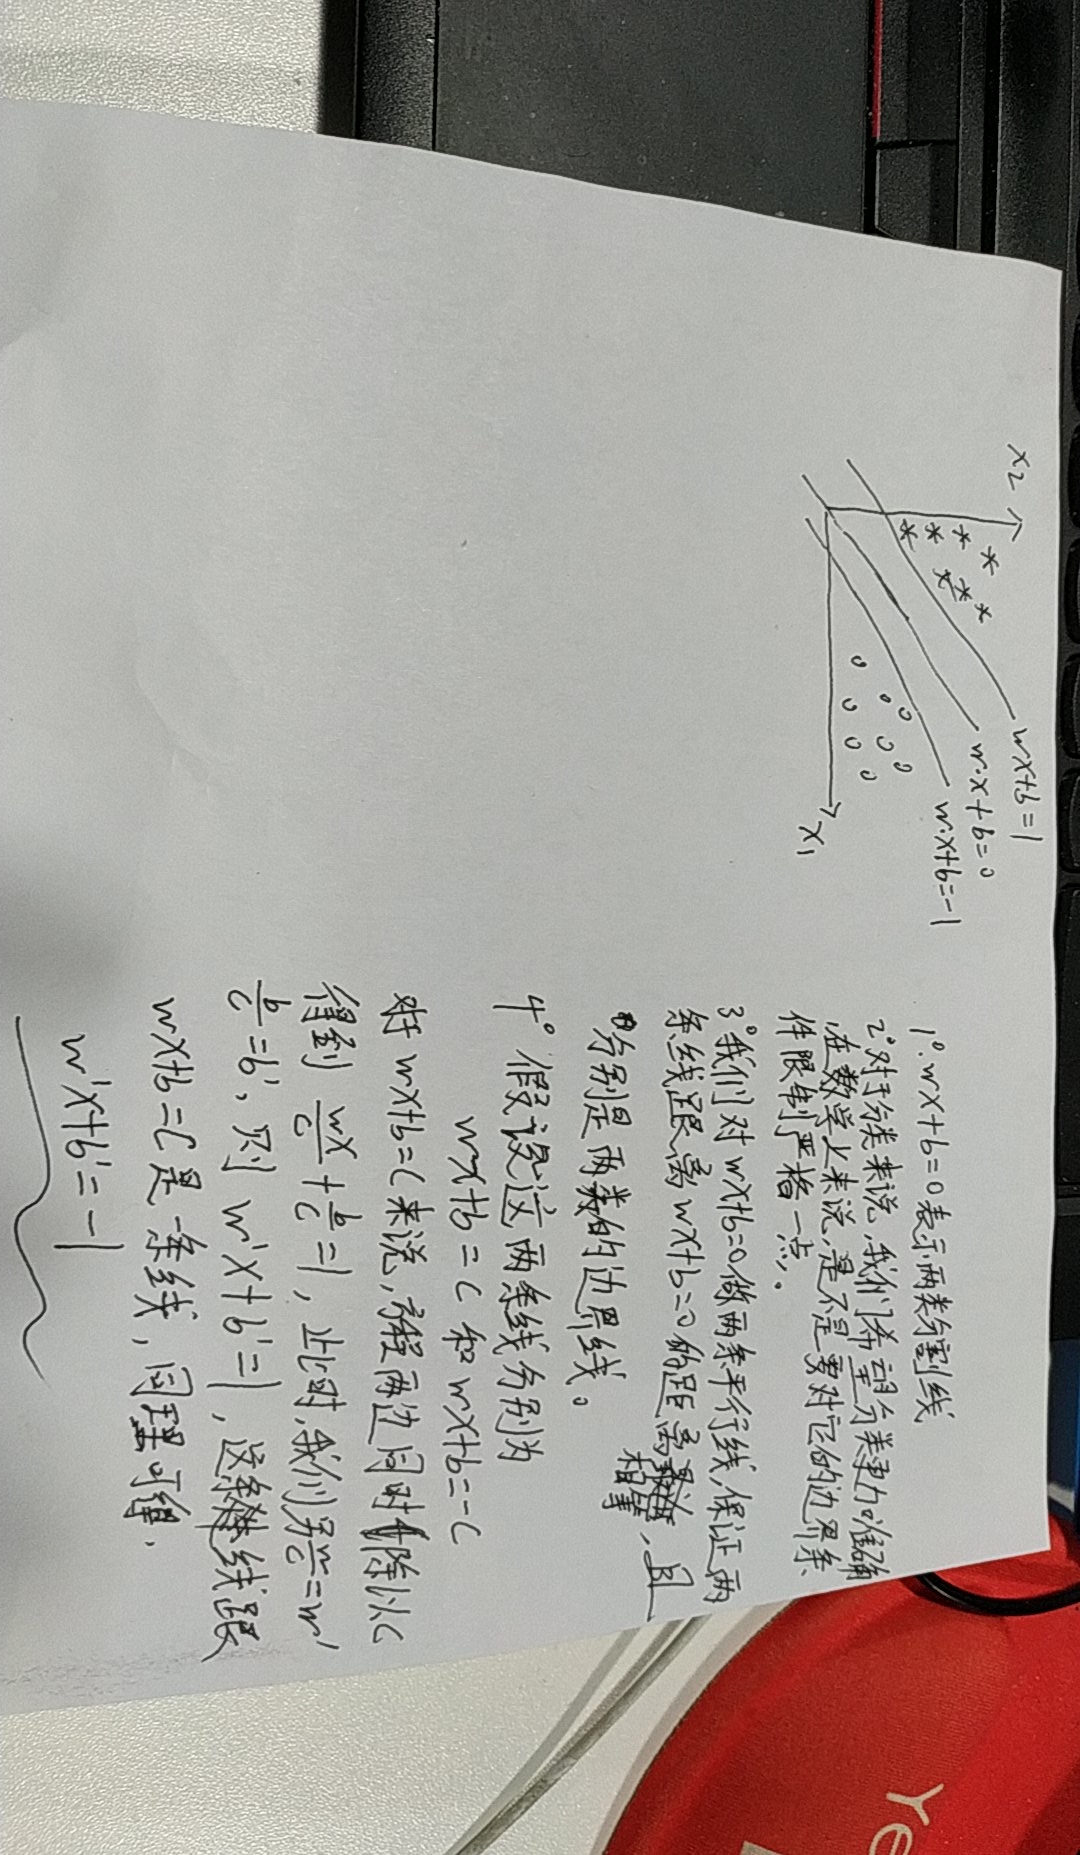 x2
wx+b=1
w·x+b=0
w·x+b=-1
x1
1°. wx+b=0 表示两类分割线
2° 对于分类来说,我们希望分类更加准确
在数学上来说,是不是要对它的边界条
件限制严格一点。
3° 我们对 wx+b=0 做两条平行线,保证两
条线距离 wx+b=0 的距离相等,且
分别是两类的边界线。
4° 假设这两条线分别为
wx+b=c 和 wx+b=-c
对于 wx+b=c 来说,方程两边同时除以c
得到 wx/c + b/c = 1, 此时,我们另 w/c = w'
b/c = b', 则 w'x+b'=1, 这条线跟
wx+b=c是一条线,同理可得,
w'x+b'=-1
Ye